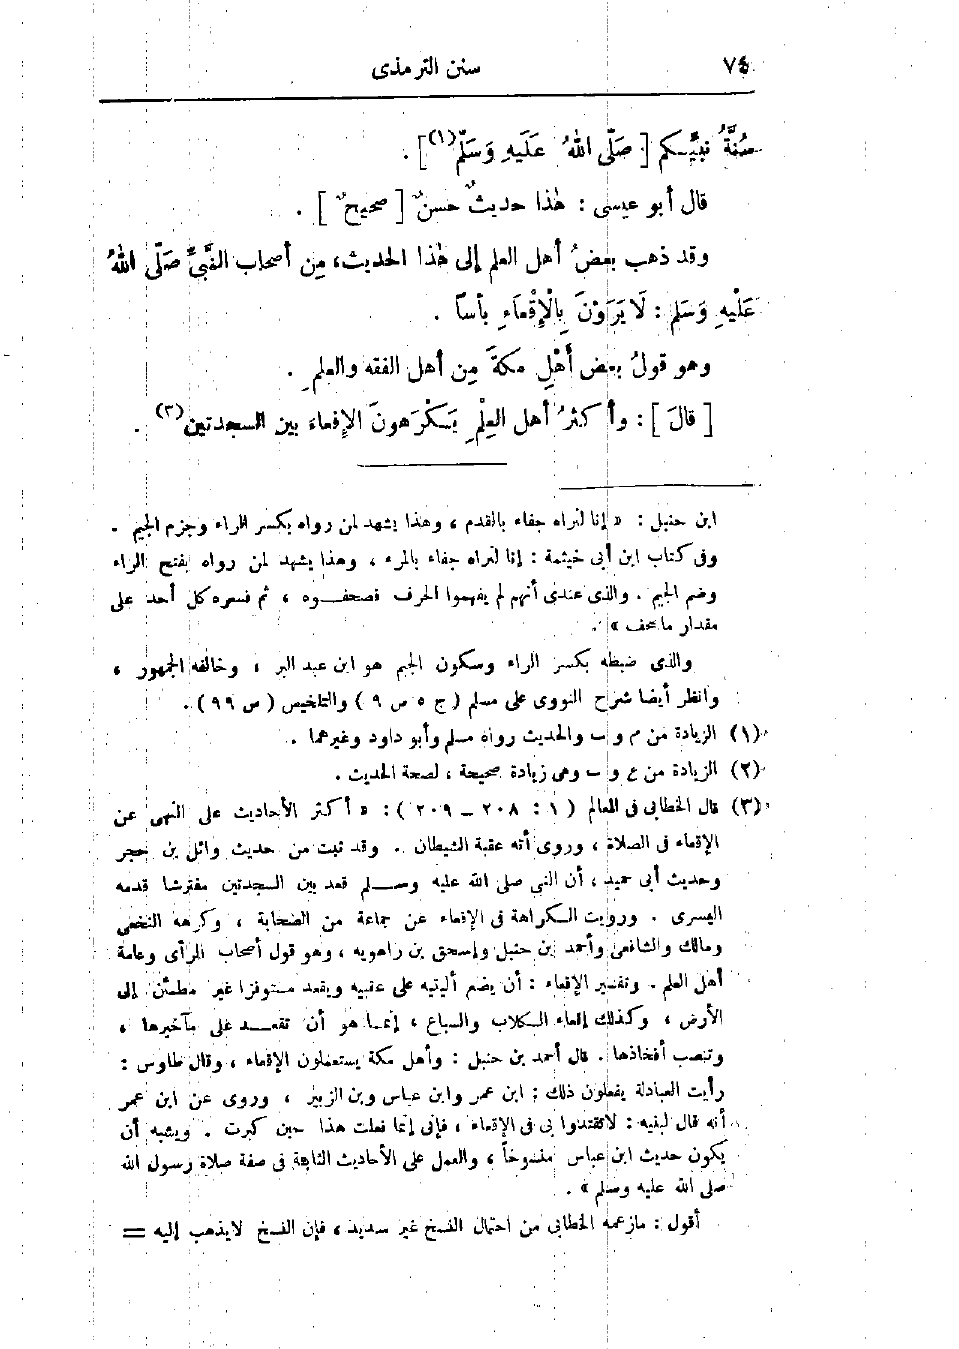 ٧٤
سنن الترمذى
سُنَّةُ نبيِّكم [ صَلَّى اللهُ عَلَيهِ وَسَلَّم (١) ] .
قال أبو عيسى : هٰذا حديثٌ حسنٌ [ صحيحٌ ] .
وقد ذهب بعضُ أهل العلم إلى هٰذا الحديث، مِن أصحاب النَّبىِّ صَلَّى اللهُ
عَلَيْهِ وَسَلم : لَا يَرَوْنَ بِالْإِقْعَاءِ بأسًا .
وهو قولُ بعض أَهْلِ مكةَ مِن أهل الفقه والعلمِ .
[ قالَ ] : وأكثرُ أهل العِلْمِ يَكْرَهونَ الإِقعاءَ بين السجدتين (٣) .
ابن حنبل : « إنا لنراه جفاء بالقدم ، وهذا يشهد لمن رواه بكسر الراء وجزم الجيم .
وفى كتاب ابن أبى خيثمة : إنا لنراه جفاء بالمرء ، وهذا يشهد لمن رواه بفتح الراء
وضم الجيم . والذى عندى أنهم لم يفهموا الحرف فصحفوه ، ثم فسره كل أحد على
مقدار ما صحف » .
والذى ضبطه بكسر الراء وسكون الجيم هو ابن عبد البر ، وخالفه الجمهور ،
وانظر أيضا شرح النووى على مسلم ( ج ٥ ص ٩ ) والتلخيص ( ص ٩٩ ) .
(١) الزيادة من م و ب والحديث رواه مسلم وأبو داود وغيرهما .
(٢) الزيادة من ع و ب وهى زيادة صحيحة ، لصحة الحديث .
(٣) قال الخطابى فى المعالم ( ١ : ٢٠٨ - ٢٠٩ ) : « أكثر الأحاديث على النهى عن
الإقعاء فى الصلاة ، وروى أنه عقبة الشيطان . وقد ثبت من حديث وائل بن حجر
وحديث أبى حميد ، أن النبى صلى الله عليه وسلم قعد بين السجدتين مفترشا قدمه
اليسرى . ورويت الكراهة فى الإقعاء عن جماعة من الصحابة ، وكرهه النخعى
ومالك والشافعى وأحمد بن حنبل وإسحق بن راهويه ، وهو قول أصحاب الرأى وعامة
أهل العلم . وتفسير الإقعاء : أن يضم أليتيه على عقبيه ويقعد مستوفزا غير مطمئن إلى
الأرض ، وكذلك إقعاء الكلاب والسباع ، إنما هو أن تقعد على مآخيرها ،
وتنصب أفخاذها . قال أحمد بن حنبل : وأهل مكة يستعملون الإقعاء ، وقال طاوس :
رأيت العبادلة يفعلون ذلك : ابن عمر وابن عباس وبن الزبير ، وروى عن ابن عمر
أنه قال لبنيه : لا تقتدوا بى فى الإقعاء ، فإنى إنما فعلت هذا حين كبرت . ويشبه أن
يكون حديث ابن عباس منسوخاً ، والعمل على الأحاديث الثابتة فى صفة صلاة رسول الله
صلى الله عليه وسلم » .
أقول : مازعمه الخطابى من احتمال النسخ غير سديد ، فإن النسخ لايذهب إليه =